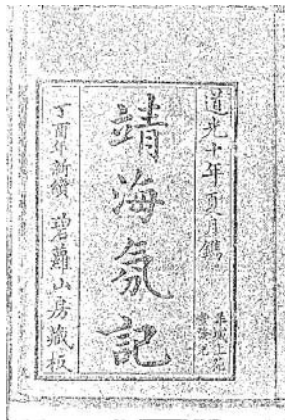 道光十年夏月鐫
靖海氛記
丁酉年新續 碧蘿山房藏板